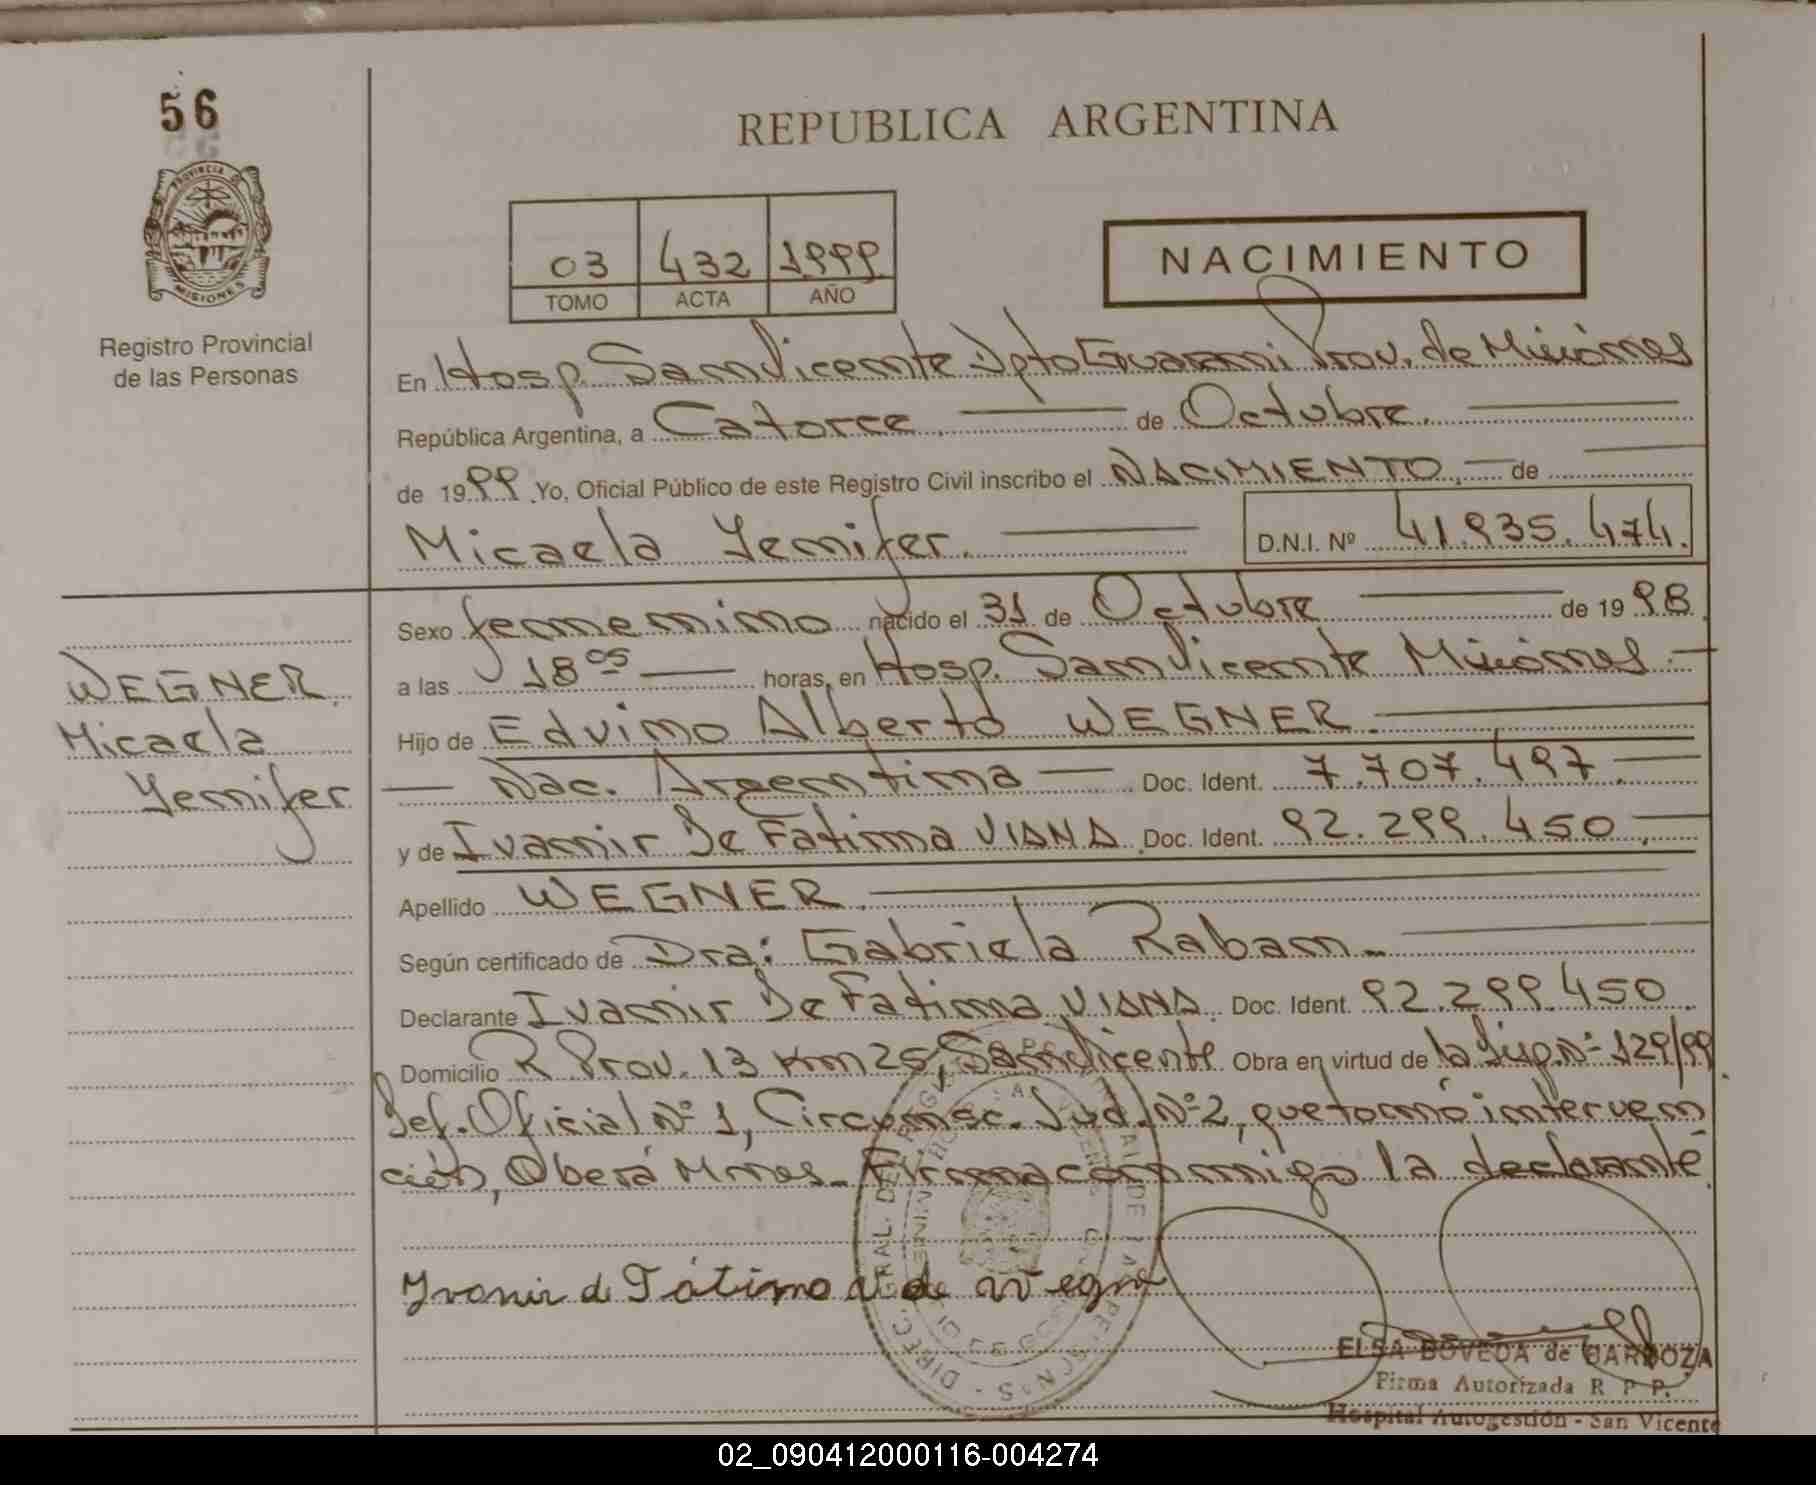 56
REPUBLICA ARGENTINA
PROVINCIA DE
MISIONES
Registro Provincial
de las Personas
03 432 1999
TOMO ACTA AÑO
NACIMIENTO
En Hosp. San Vicente Dpto Guarani Prov. de Misiones
República Argentina, a Catorce de Octubre
de 1999 Yo, Oficial Público de este Registro Civil inscribo el NACIMIENTO, de
Micaela Yenifer. D.N.I. Nº 41.935.474.
Sexo femenino nacido el 31 de Octubre de 1998
a las 18 05 horas, en Hosp. San Vicente Misiones
WEGNER
Micaela
Yenifer
Hijo de Edvino Alberto WEGNER
Nac. Argentina Doc. Ident. 7.707.497
y de Ivanir De Fatima VIANA Doc. Ident. 92.299.450
Apellido WEGNER
Según certificado de Dra: Gabriela Raban
Declarante Ivanir De Fatima VIANA. Doc. Ident. 92.299.450
Domicilio R Prov. 13 Km 25, San Vicente Obra en virtud de la Nº 129/99
Def. Oficial Nº 1, Circunsc. Jud. Nº 2, que tomó interven
ción, Oberá Mnes. Firma conmigo la declarante
Ivanir de Fátima V de Wegner
ELSA BOVEDA de CARDOZA
Firma Autorizada R. P. P.
Hospital Autogestión - San Vicente
02_090412000116-004274